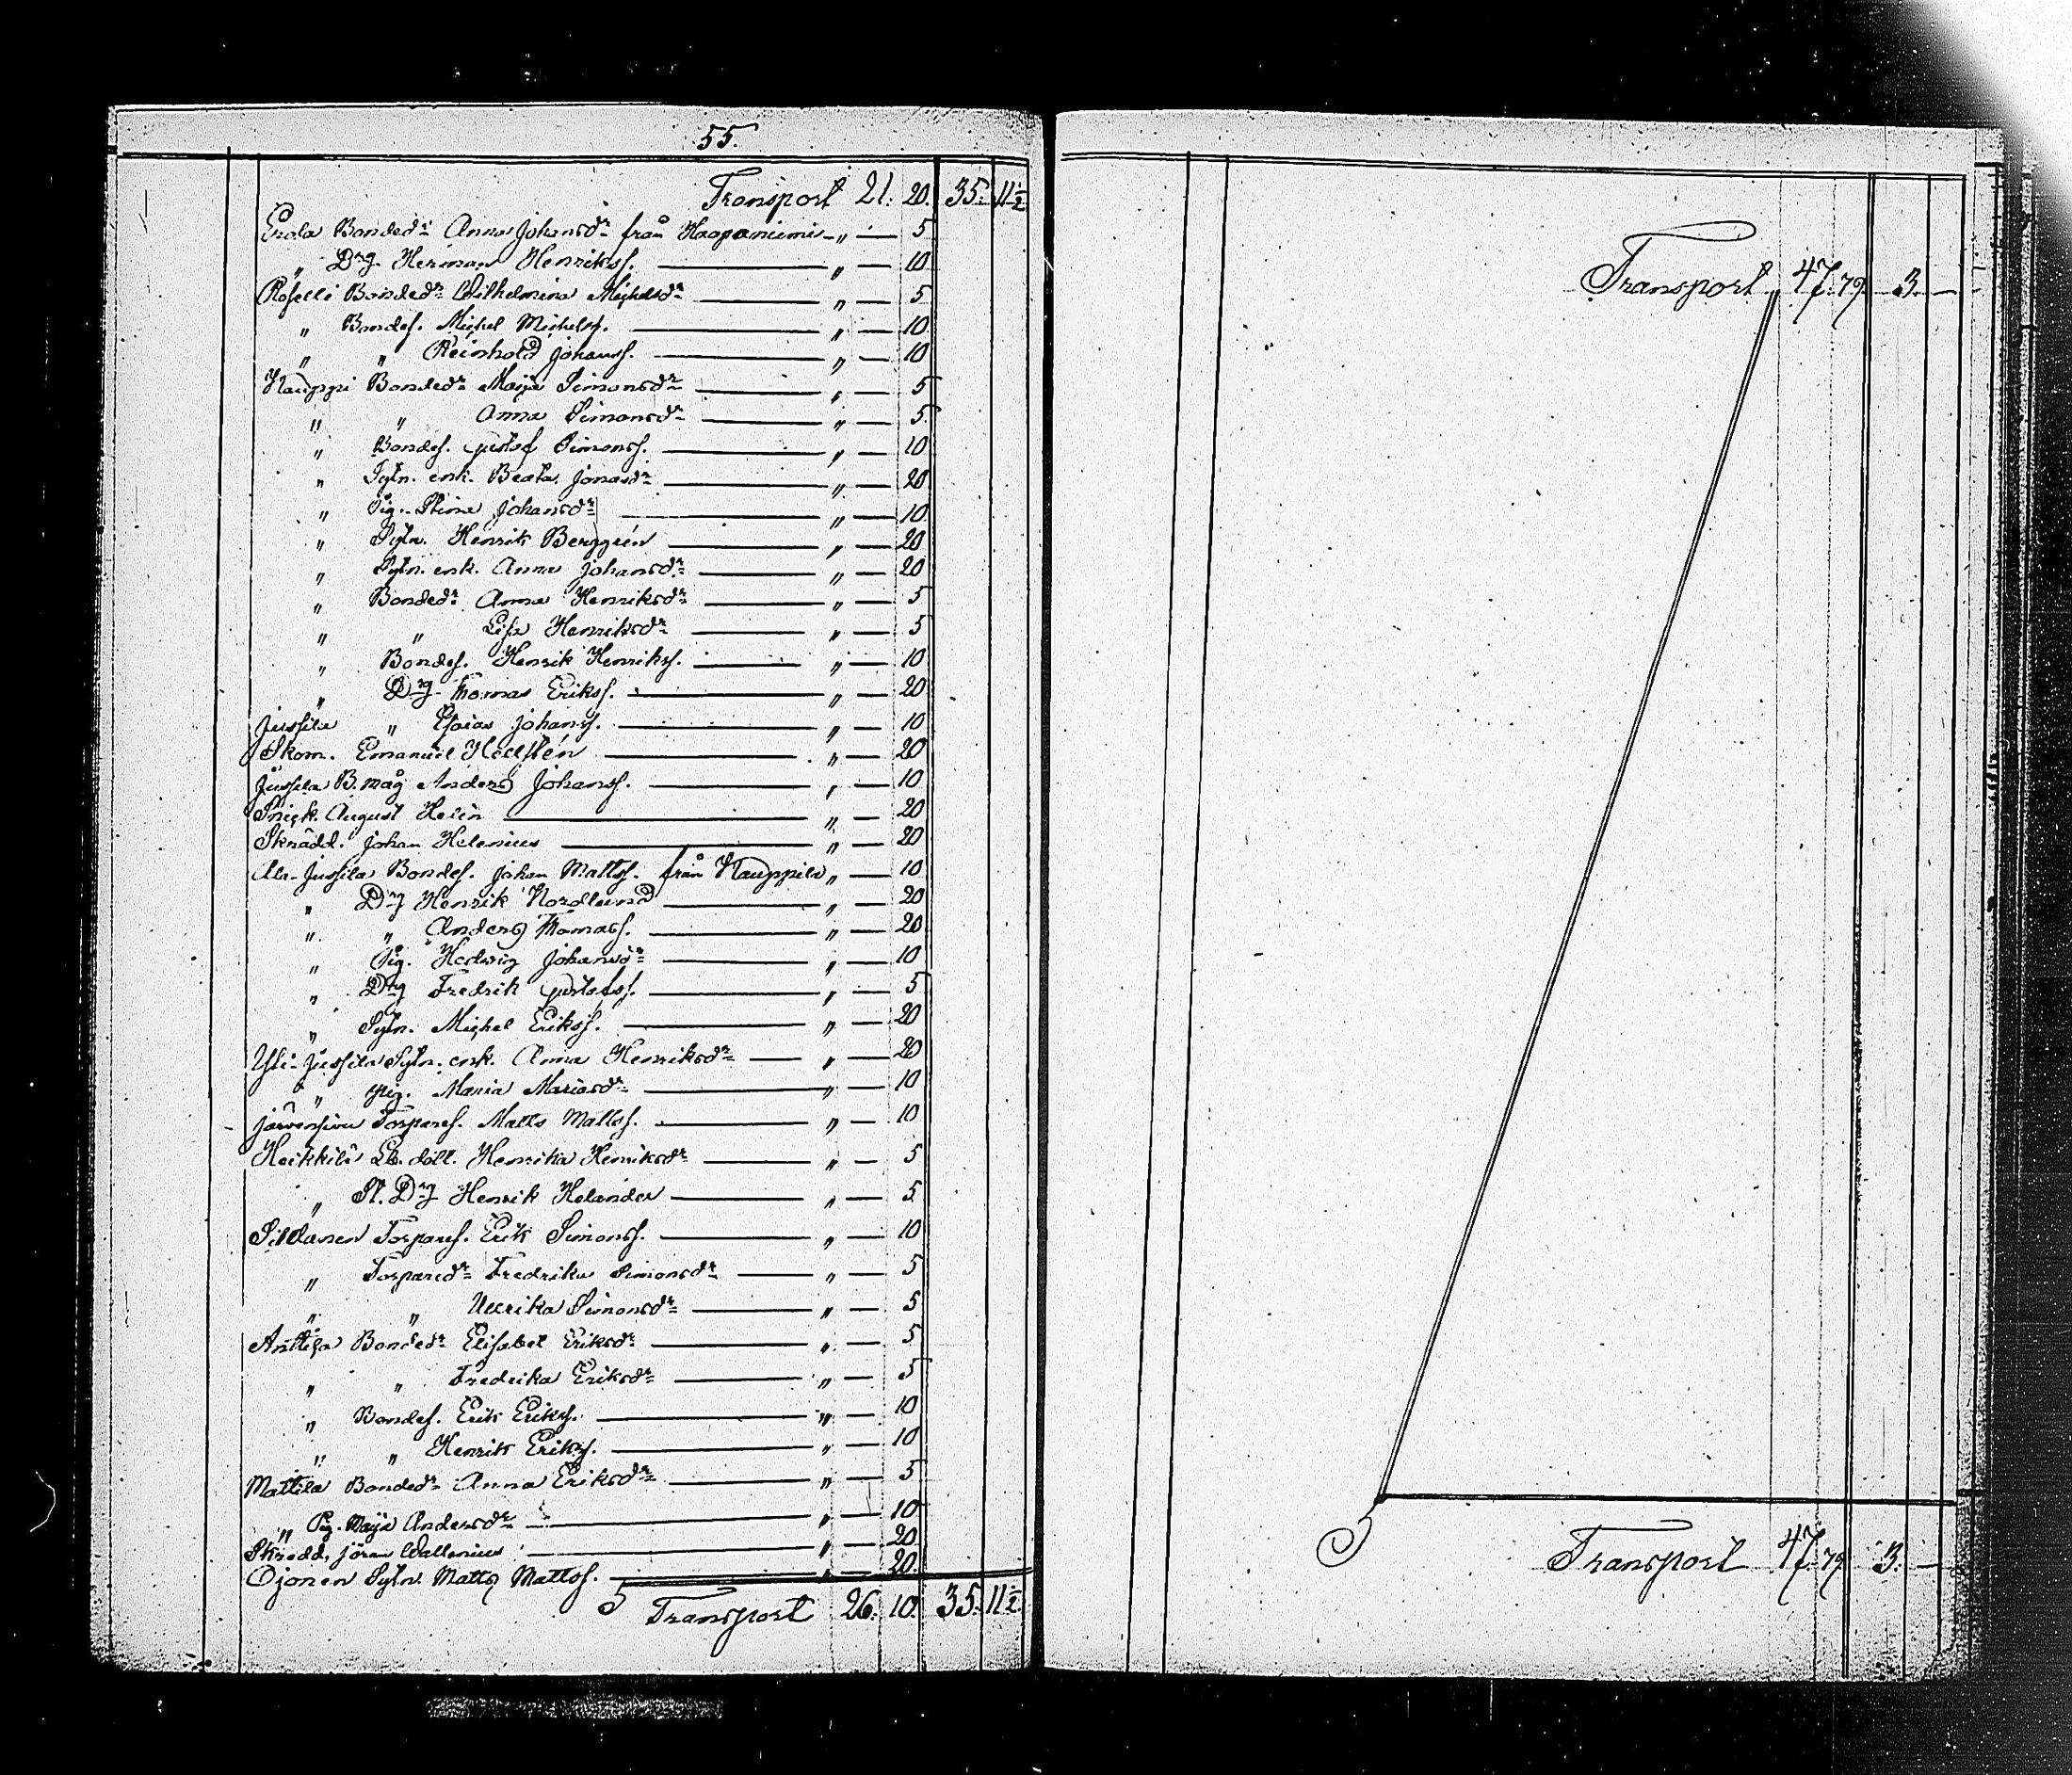 55.
Transport 21. 20. 35. 11½
Erola Bondedr Anna Johansdr från Haapaniemi — " — 5
" Drg. Herman Henrikss. — " — 10
Roselli Bondedr Wilhelmina Michelsdr — " — 5
" Bondes. Michel Michelss. — " — 10
" " Reinhold Johanss. — " — 10
Kauppi Bondedr Maija Simonsdr — " — 5
" " Anna Simonsdr — " — 5
" Bondes. Gustaf Simonss. — " — 10
" Sytn. enk. Beata Jonasdr — " — 20
" Pig. Stina Johansdr — " — 10
" Sytn. Henrik Berggrén — " — 20
" Sytn. enk. Anna Johansdr — " — 20
" Bondedr Anna Henriksdr — " — 5
" " Lisa Henriksdr — " — 5
" Bondes. Henrik Henrikss. — " — 10
" Drg Thomas Erikss. — " — 20
Jussila " Esaias Johanss. — " — 10
Skom. Emanuel Hellstén — " — 20
Jussila B. måg Anders Johanss. — " — 10
Snick. August Helin — " — 20
Skrädd. Johan Helenius — " — 20
Ala-Jussila Bondes. Johan Mattss. från Kauppila " — 10
" Drg Henrik Nordlund — " — 20
" " Anders Thomass. — " — 20
" Pig. Hedvig Johansdr — " — 10
" Drg Fredrik Gustafss. — " — 5
" Sytn. Michel Erikss. — " — 20
Yli-Jussila Sytn. enk. Anna Henriksdr — " — 20
" Pig. Maria Mariasdr — " — 10
Järvensivu Torpares. Matts Mattss. — " — 10
Heikkilä Lb. dott. Henrika Henriksdr — " — 5
" St. Drg Henrik Helander — " — 5
Sillanen Torpares. Erik Simonss. — " — 10
" Torparedr Fredrika Simonsdr — " — 5
" " Ulrika Simonsdr — " — 5
Anttila Bondedr Elisabet Eriksdr — " — 5
" " Fredrika Eriksdr — " — 5
" Bondes. Erik Erikss. — " — 10
" " Henrik Erikss. — " — 10
Mattila Bondedr Anna Eriksdr — " — 5
" Pig. Maija Andersdr — " — 10
Skrädd. Jöran Wallenius — " — 20
Ojonen Sytn. Matts Mattss. — " — 20
Transport 26. 10. 35. 11½
Transport 47. 79. 3. —
Transport 47. 79. 3. —